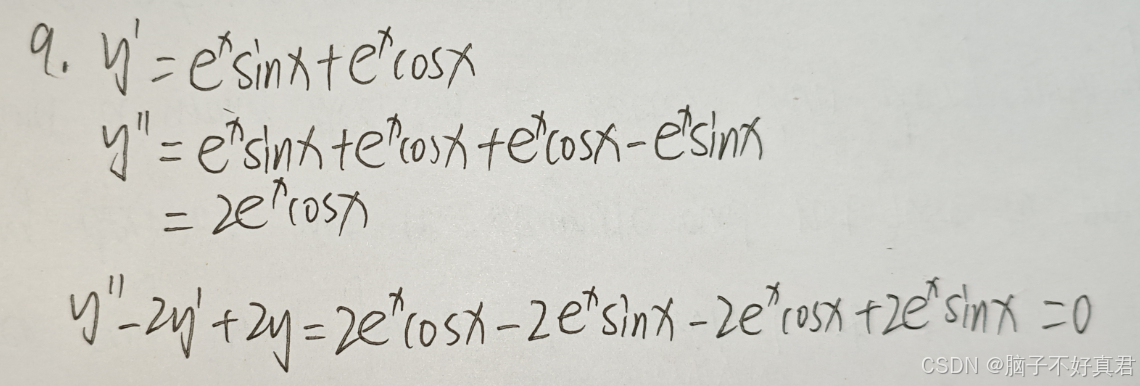 9. y' = eˣsinx + eˣcosx
y'' = eˣsinx + eˣcosx + eˣcosx - eˣsinx
= 2eˣcosx
y'' - 2y' + 2y = 2eˣcosx - 2eˣsinx - 2eˣcosx + 2eˣsinx = 0
CSDN @脑子不好真君